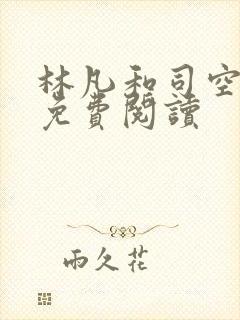 林凡和司空
免費閱讀
雨久花